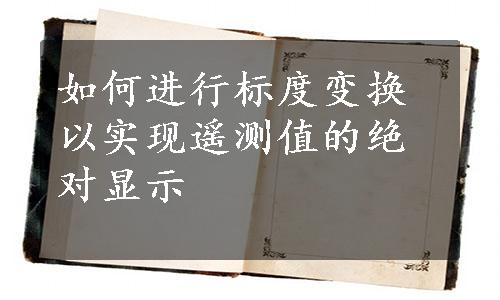 如何进行标度变换
以实现遥测值的绝
对显示